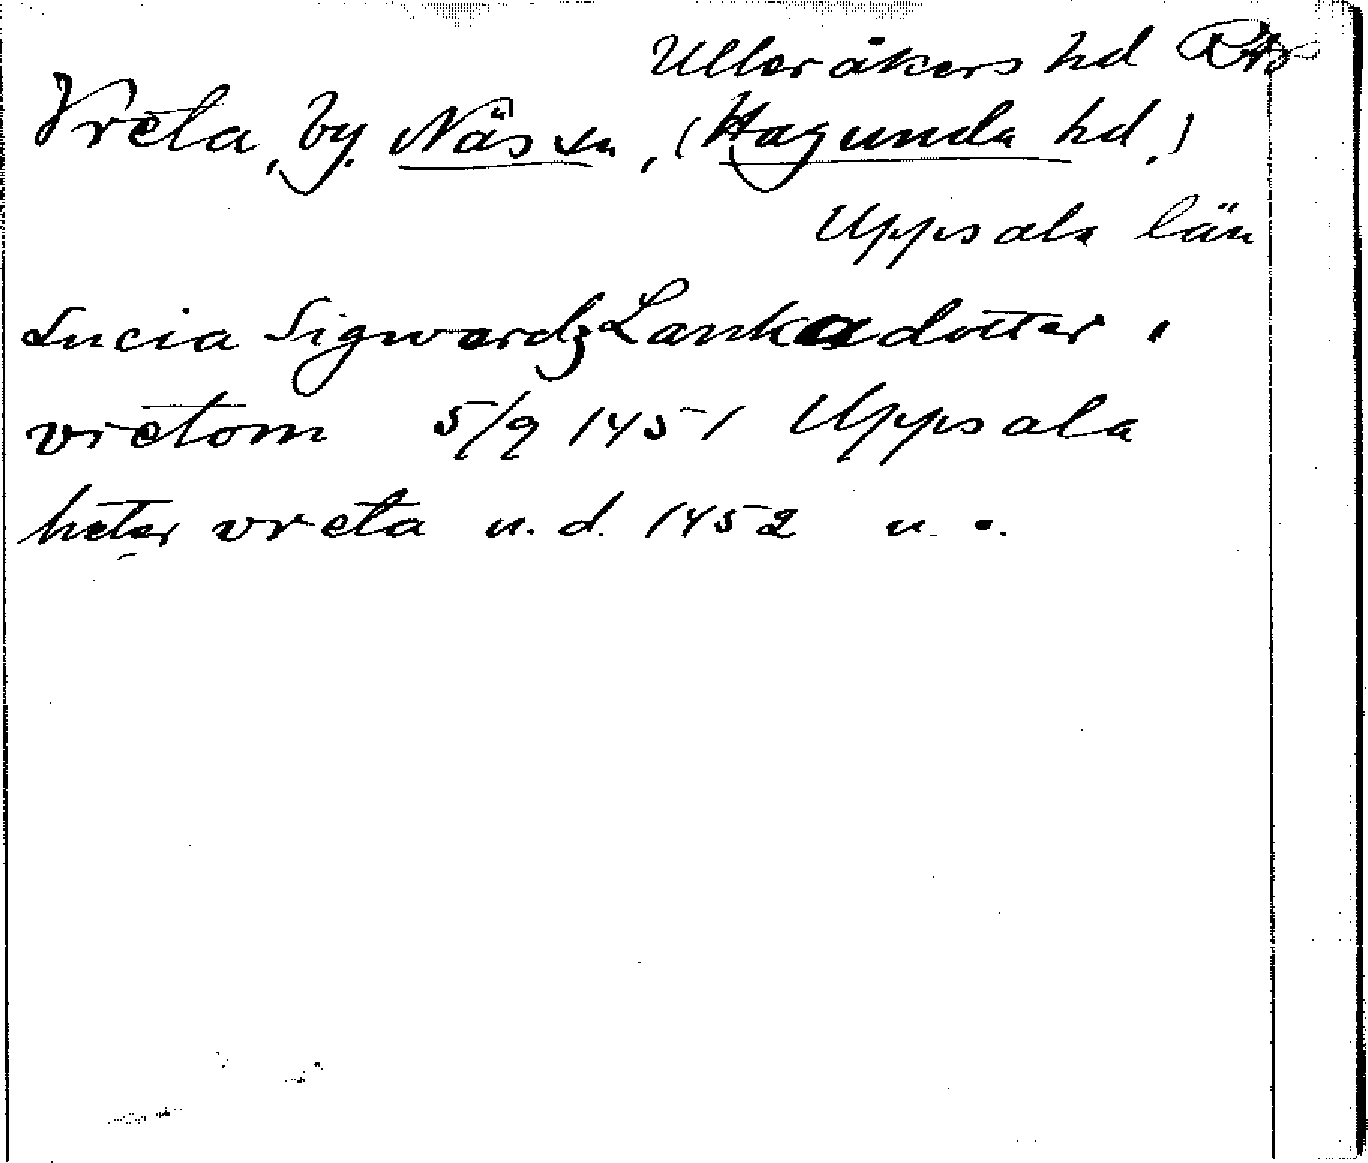 Ulleråkers hd
Vreta, by. Näs sn, (Hagunda hd.)
Uppsala län
Lucia Sigwardz Lankadotter i
vretom 5/9 1451 Uppsala
heter vreta u. d. 1452 u. o.